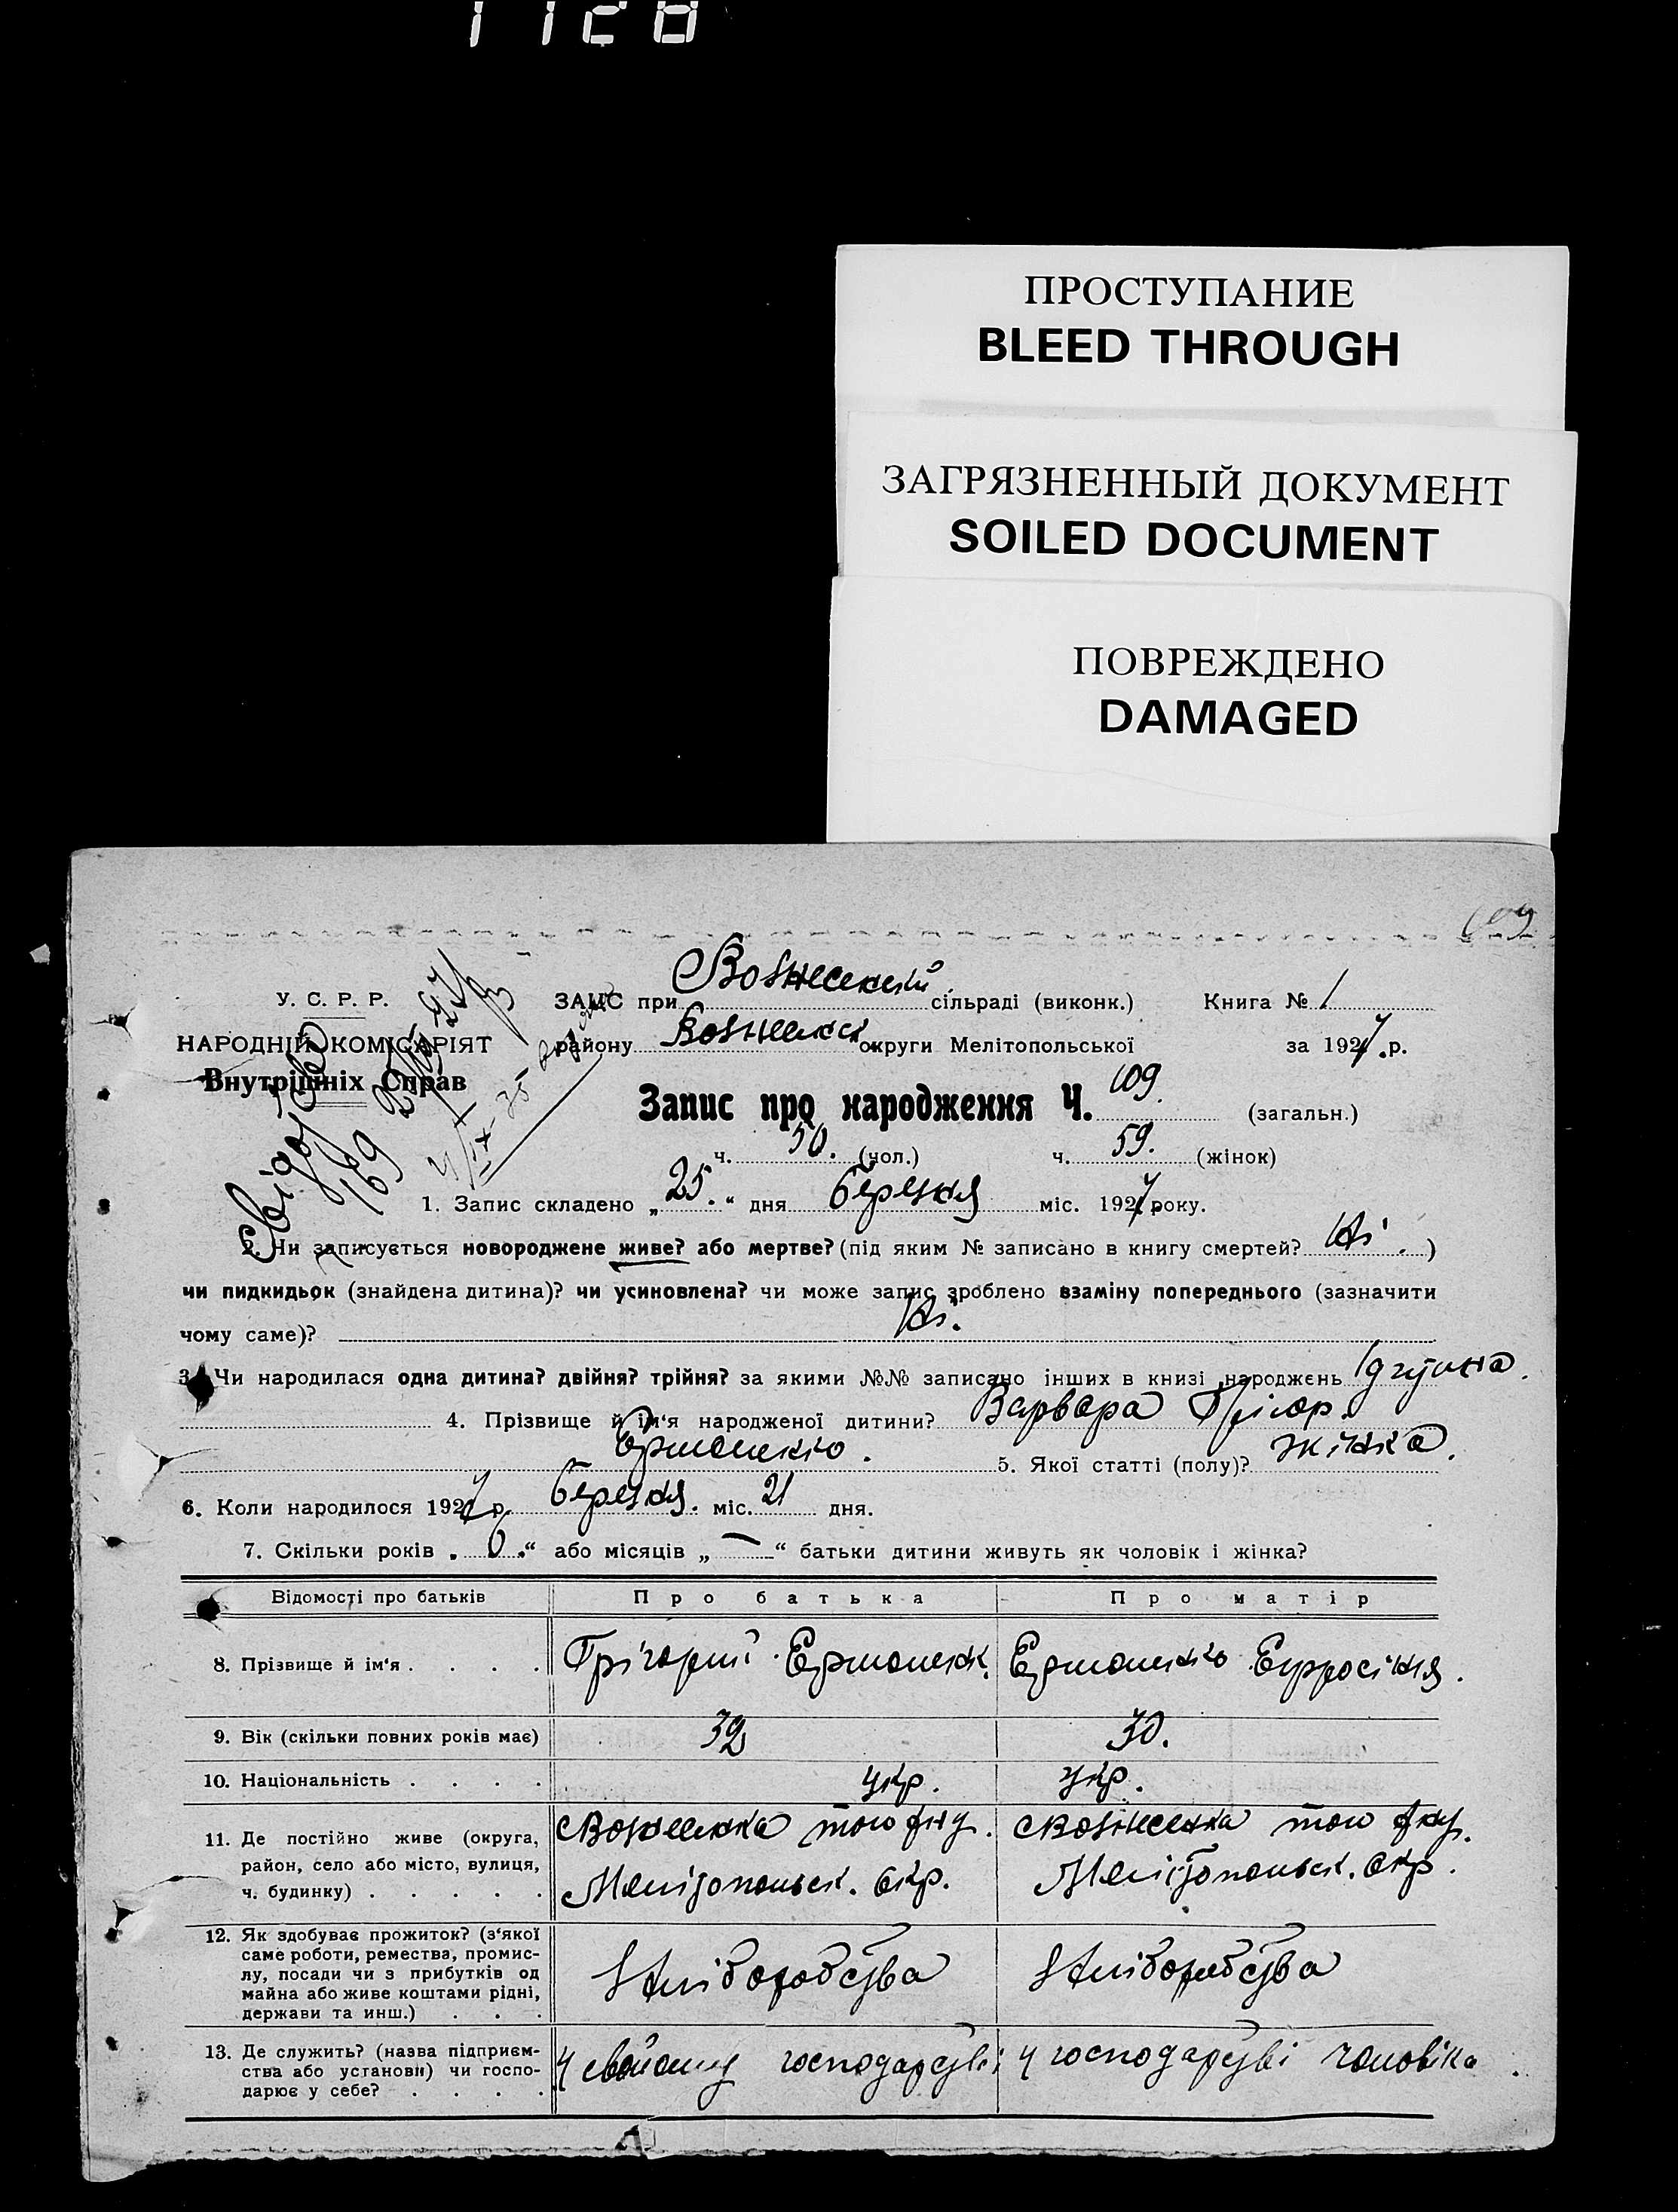 1128
ПРОСТУПАНИЕ
BLEED THROUGH
ЗАГРЯЗНЕННЫЙ ДОКУМЕНТ
SOILED DOCUMENT
ПОВРЕЖДЕНО
DAMAGED
109
У. С. Р. Р.
НАРОДНІЙ КОМІСАРІЯТ
Внутрішніх Справ
169
ЗАЦС при Вознесенский сільраді (виконк.) Книга № 1
району Вознесенск. округи Мелітопольської за 1927 .р.
Запис про народження Ч. 109. (загальн.)
ч. 50. (чол.) ч. 59. (жінок)
1. Запис складено „ 25. “ дня березня міс. 1927 року.
2. Чи записується новороджене живе? або мертве? (під яким № записано в книгу смертей? Ні. )
чи пидкидьок (знайдена дитина)? чи усиновлена? чи може запис зроблено взаміну попереднього (зазначити
чому саме)? Ні.
3. Чи народилася одна дитина? двійня? трійня? за якими №№ записано інших в книзі народжень
4. Прізвище й ім‘я народженої дитини? Варвара Грігор.
Ермоленко. 5. Якої статті (полу)? жінка.
6. Коли народилося 1927 р. березня. міс. 21 дня.
7. Скільки років „ 6 .“ або місяців „ — “ батьки дитини живуть як чоловік і жінка?
Відомості про батьків Про батька Про матір
8. Прізвище й ім‘я . . . . Грігорий Ермоленк. Ермоленко Ефросіния.
9. Вік (скільки повних років має) 32 30.
10. Національність . . . . укр. укр.
11. Де постійно живе (округа,
район, село або місто, вулиця,
ч. будинку) . . . . .
Вознесенка того ж
Мелітопольск. окр.
Вознесенка того ж
Мелітопольск. окр.
12. Як здобуває прожиток? (з‘якої
саме роботи, ремества, промис-
лу, посади чи з прибутків од
майна або живе коштами рідні,
держави та инш.) . . .
Хліборобства Хліборобства
13. Де служить? (назва підприєм-
ства або установи) чи госпо-
дарює у себе? . . . .
У свойому господарстві У господарстві чоловіка.